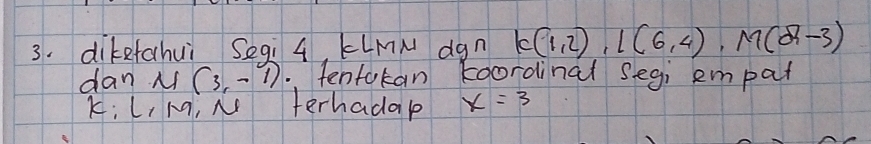 3. diketahui Segi 4 KLMN dgn K(1,2), L(6,4), M(8,-3)
dan N (3,-1). tentukan koordinat segi empat
K, L, M, N terhadap x = 3